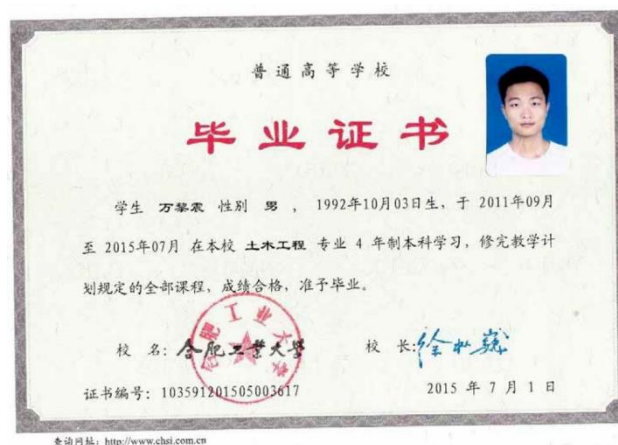 普通高等学校
毕业证书
学生 万黎震 性别 男 , 1992年10月03日生, 于 2011年09月
至 2015年07月 在本校 土木工程 专业 4 年制本科学习, 修完教学计
划规定的全部课程, 成绩合格, 准予毕业。
校 名: 合肥工業大學 校 长:
合肥工业大学
证书编号: 103591201505003617 2015 年 7 月 1 日
查询网址: http://www.chsi.com.cn